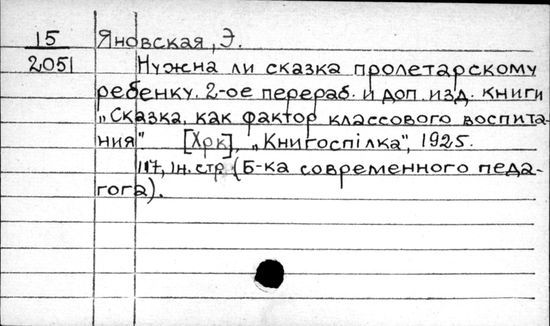 15 Яновская, Э.
2051 Нужна ли сказка пролетарскому
ребенку. 2-ое перераб. и доп. изд. книги
„Сказка, как фактор классового воспита-
ния" [Хрк], „Книгоспілка", 1925.
117, Iн. стр. (Б-ка современного педа-
гога).